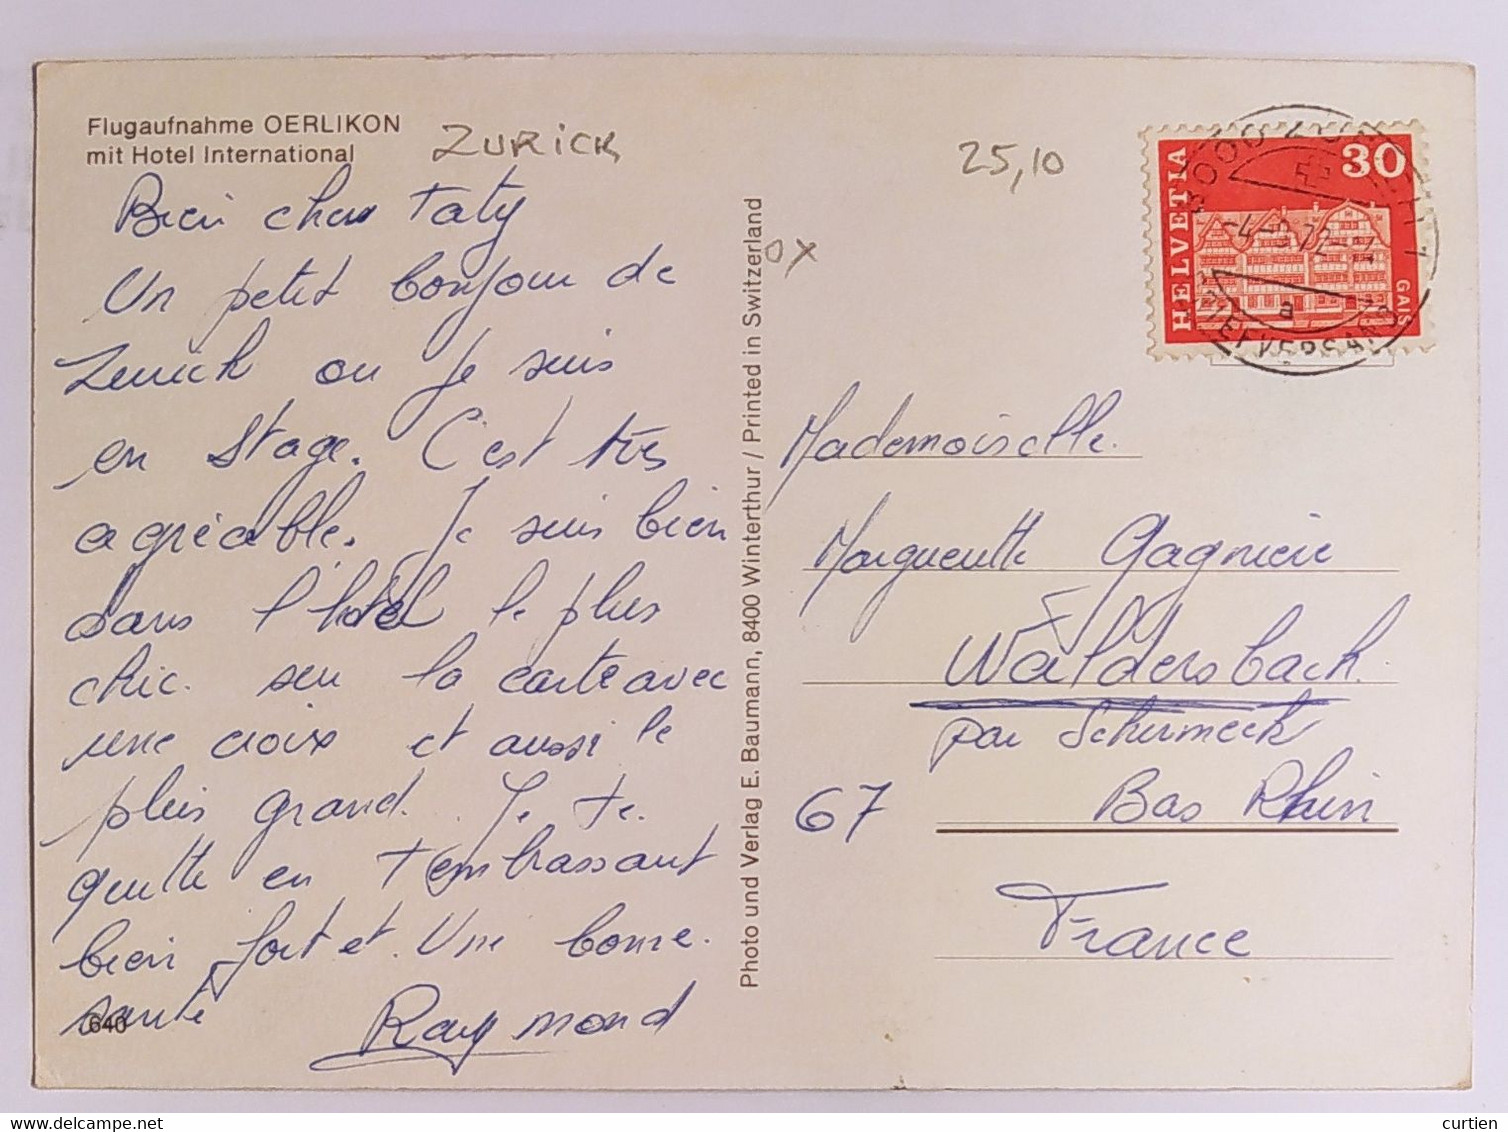 Flugaufnahme OERLIKON
mit Hotel International
ZURICK
25,10
Bien cher Taty
Un petit bonjour de
Zurich ou je suis
en stage. C'est très
agréable. Je suis bien
dans l'hotel le plus
chic. sur la carte avec
une croix et aussi le
plus grand. Je te.
quitte en t'embrassant
bien fort et. Une bonne.
santé
640
Raymond
Photo und Verlag E. Baumann, 8400 Winterthur / Printed in Switzerland
OX
HELVETIA
30
GAIS
a
BRIEFVERSAND
Mademoiselle.
Margueritte Gagniere
Waldersbach.
par Schirmeck
67
Bas Rhin
France
curtien